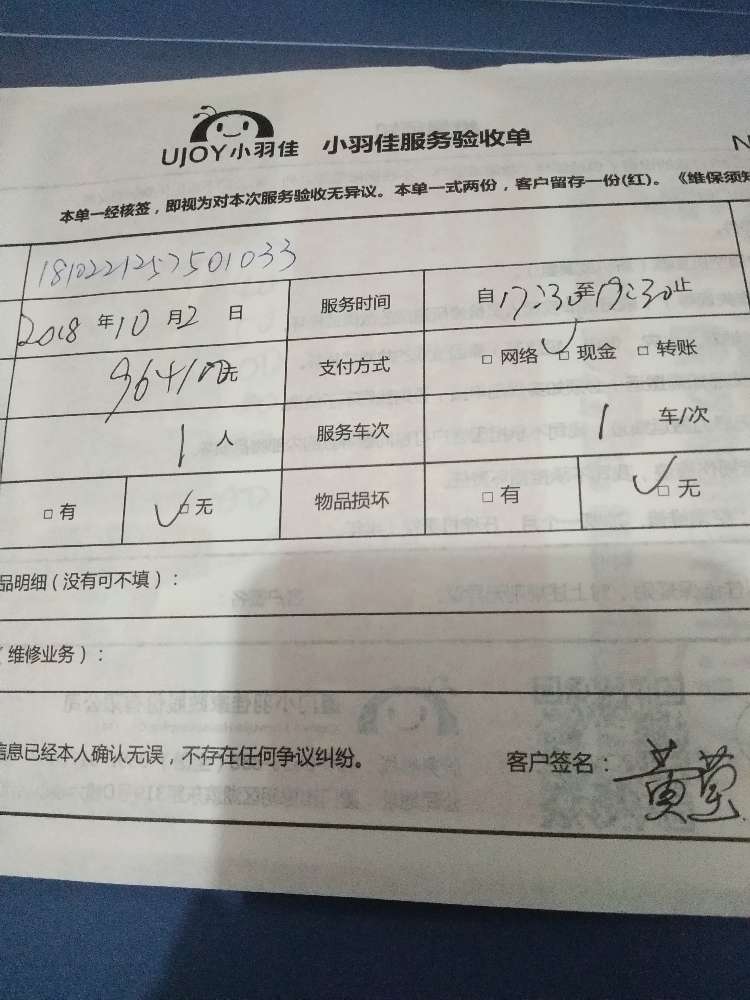 UJOY小羽佳 小羽佳服务验收单
N
本单一经核签，即视为对本次服务验收无异议。本单一式两份，客户留存一份(红)。《维保须知
1810221257501033
2018 年 10 月 2 日 服务时间 自 17:30 至 19:30 止
元 支付方式 □ 网络 □ 现金 □ 转账
1 人 服务车次 1 车/次
□ 有 □ 无 物品损坏 □ 有 □ 无
品明细（没有可不填）：
（维修业务）：
信息已经本人确认无误，不存在任何争议纠纷。 客户签名：黄